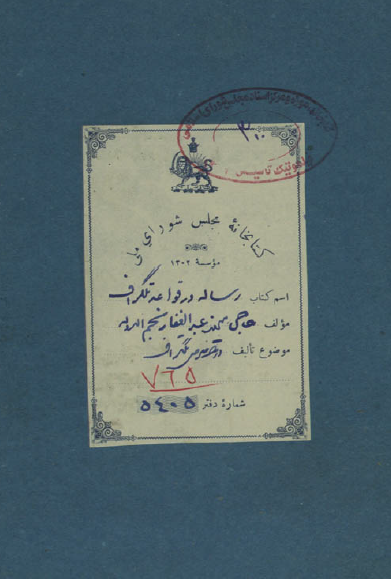 ۳۰۰
کتابخانهٔ مجلس شورای ملی
مؤسسهٔ ۱۳۰۲
اسم کتاب رساله در قواعد تلگراف
مؤلف حاجی عبدالغفار نجم الدوله
موضوع تألیف تلگراف
۷۶۵
شمارهٔ دفتر ۵۴۰۵